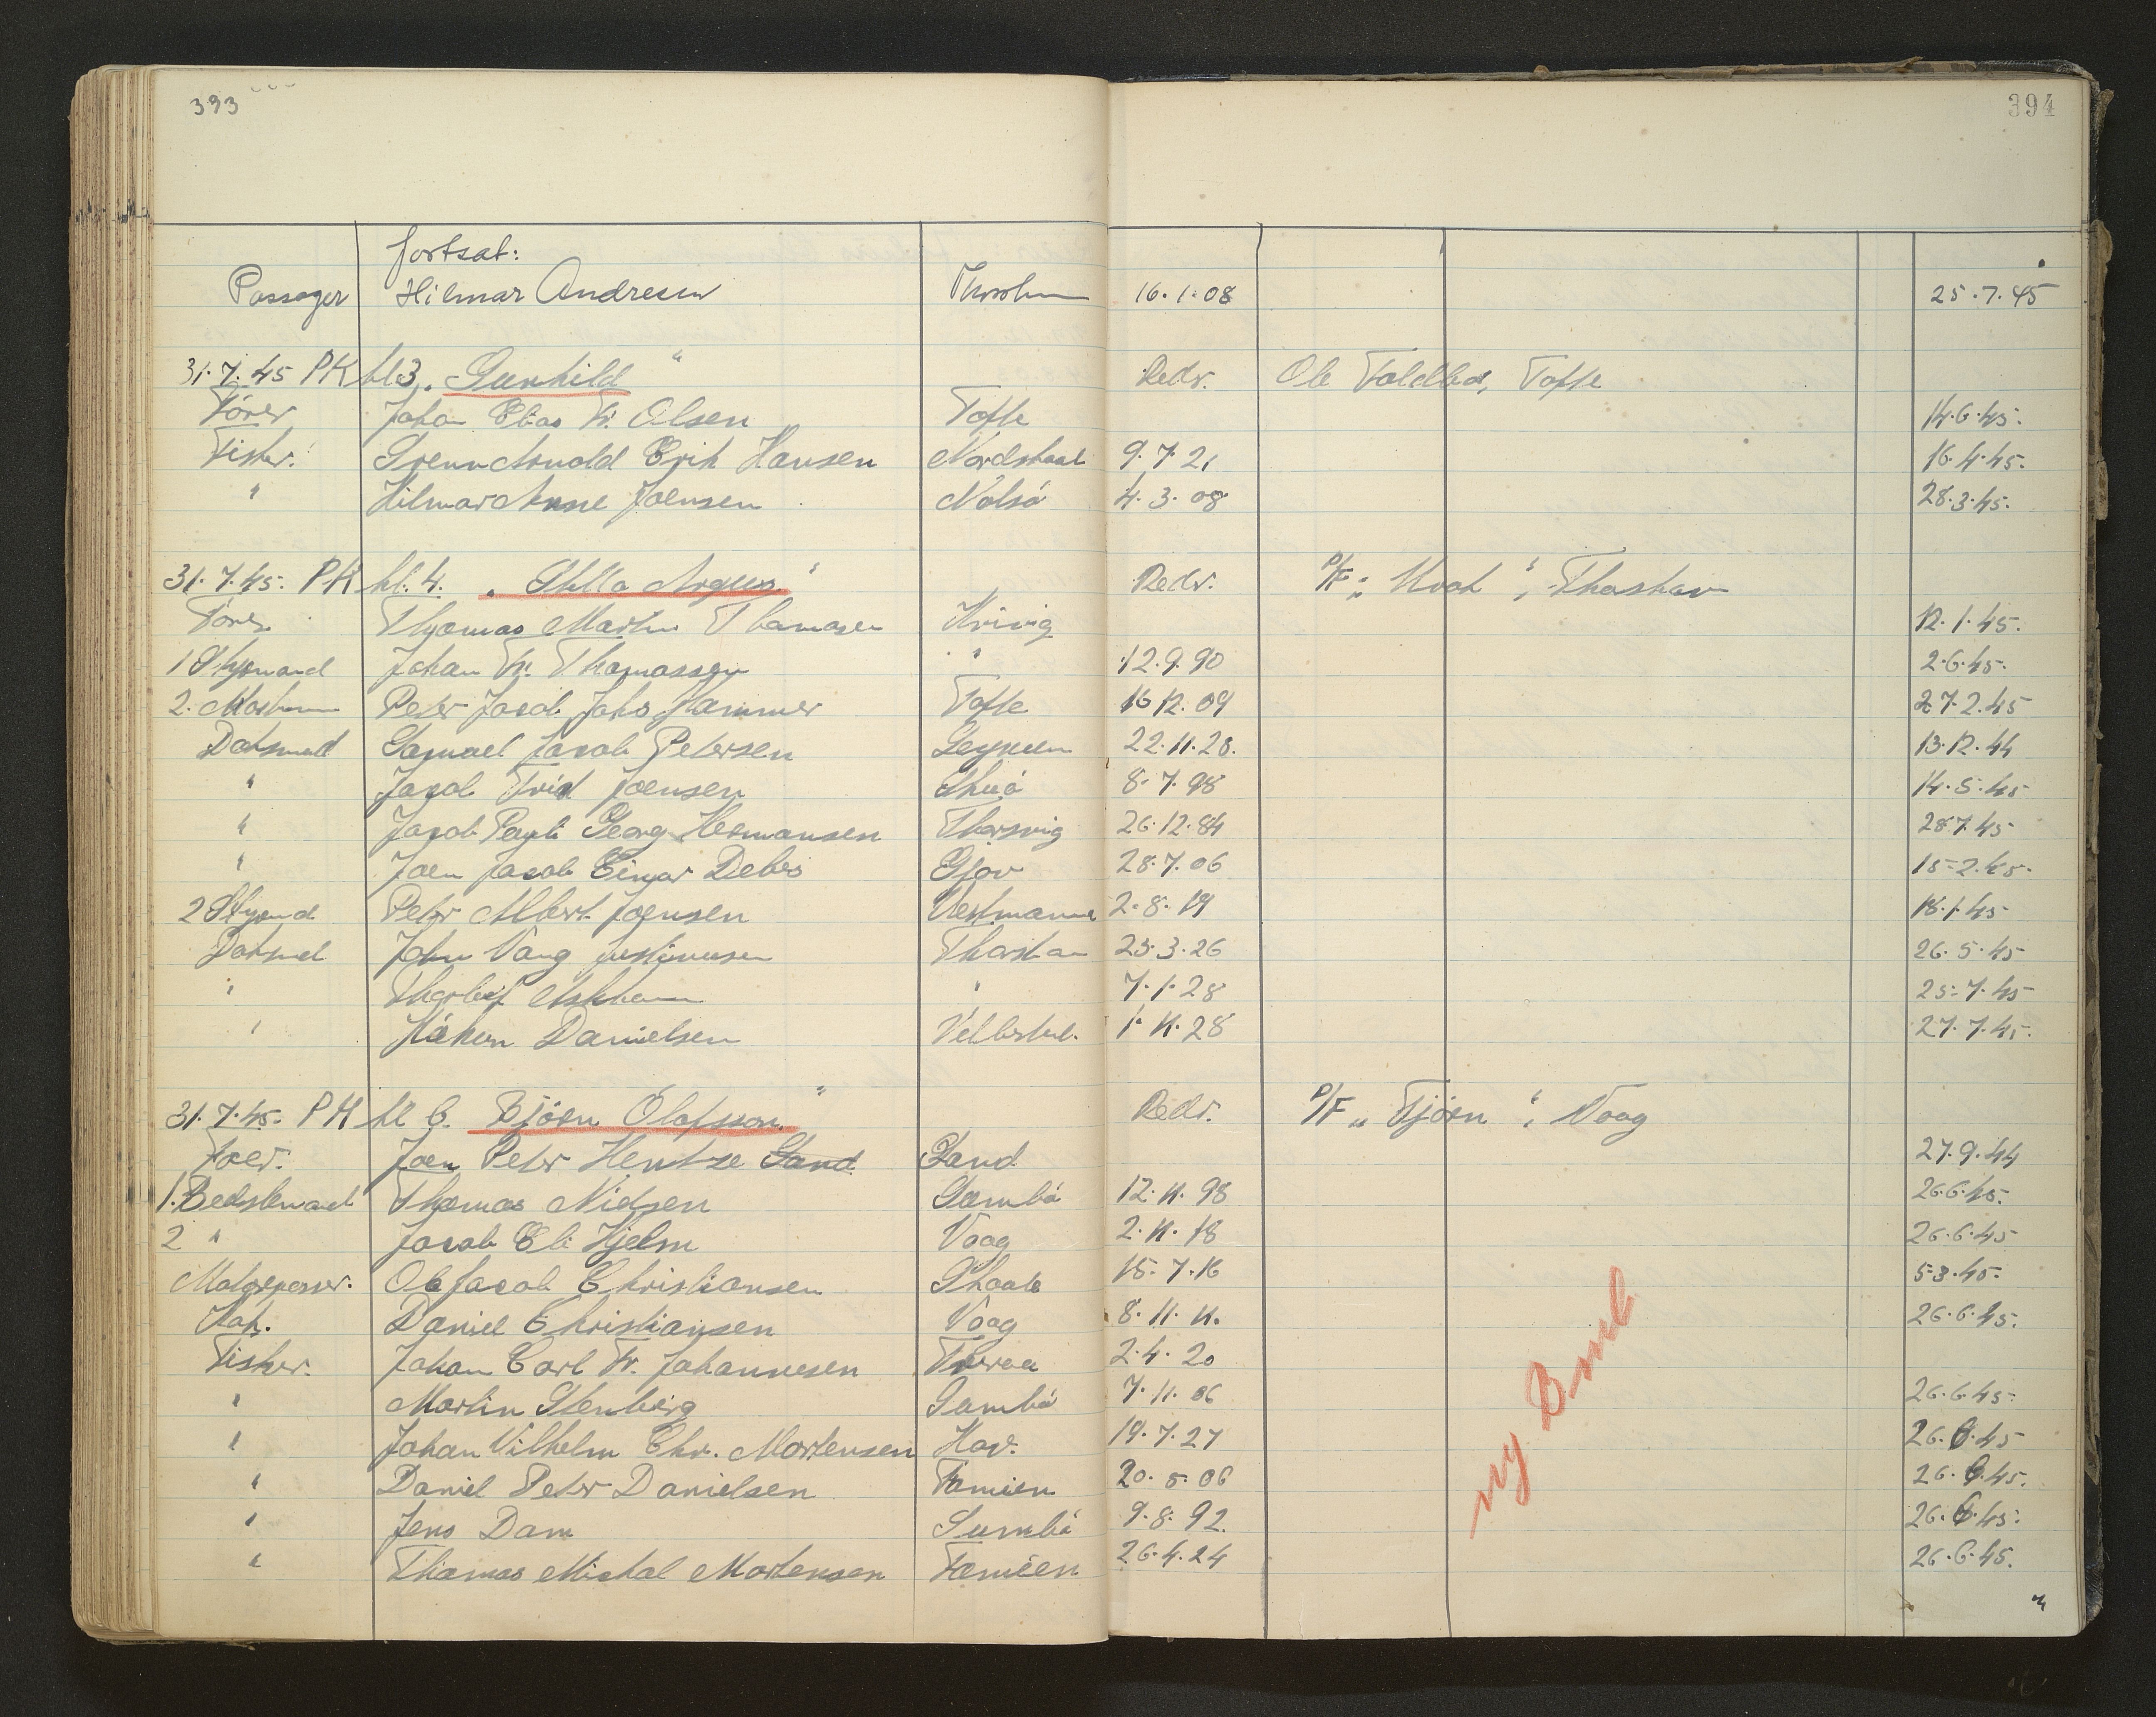 393
394
fortsat:
Passager Hilmar Andresen Thorshavn 16.1.08 25.7.45
31.7.45 PK kl 3. "Gunhild" Redr. Ole Toldbod, Tofte
Förer Johan Elias Fr. Olsen Tofte 14.6.45.
Fisker. Svenn Arnold Erik Hansen Nordskaale 9.7.21 16.4.45.
" Hilmar Joensen Nolsö 4.3.08 28.3.45.
31.7.45. PK kl. 4. "Stella Argus" Redr. P/F "Kvok", Thorshavn
Förer Thomas Martin Thomasen Kvivig 12.1.45.
1 Styrmand Johan Fr. Thomassen " 12.9.90 2.6.45.
2. Maskinm Peter Jacob Johs Hammer Tofte 16.12.09 27.2.45
Dæksmand Samuel Jacob Petersen Leynum 22.11.28. 13.12.44
" Jacob Joensen Skuö 8.7.98 14.5.45
" Jacob Pauli Georg Hermansen Thorsvig 26.12.84 28.7.45
" Joen Jacob Einar Debes Gjov 28.7.06 15.2.45.
2 Styrmd Peter Albert Joensen Vestmanna 2.8.19 18.1.45
Dæksmd John Vang Justinussen Thorshavn 25.3.26 26.5.45
" Thorleif Askham " 7.1.28 25.7.45
" Håkun Danielsen Velbestad. 1.11.28 27.7.45.
31.7.45. PK kl 6. "Björn Olafsson" Redr. P/F "Tjörn", Vaag
Förer. Joen Peter Hentze Sand Sand 27.9.44
1. Bedstemand Thomas Nielsen Sumbö 12.11.98 26.6.45.
2 " Jacob Eli Hjelm Vaag 2.11.18 26.6.45
Motorpasser. Ole Jacob Christiansen Skaale 15.7.16 5.3.45.
Kok. Daniel Christiansen Vaag 8.11.11. 26.6.45.
Fisker. Johan Carl Fr. Johannesen Tveraa 2.4.20
" Martin Stenberg Sumbö 7.11.06 26.6.45.
" Johan Vilhelm Chr. Mortensen Hov. 19.7.27 26.6.45
" Daniel Peter Danielsen Famien 20.5.06 26.6.45.
" Jens Dam Sumbö 9.8.92. 26.6.45.
" Thomas Michal Mortensen Famien 26.4.24 26.6.45.